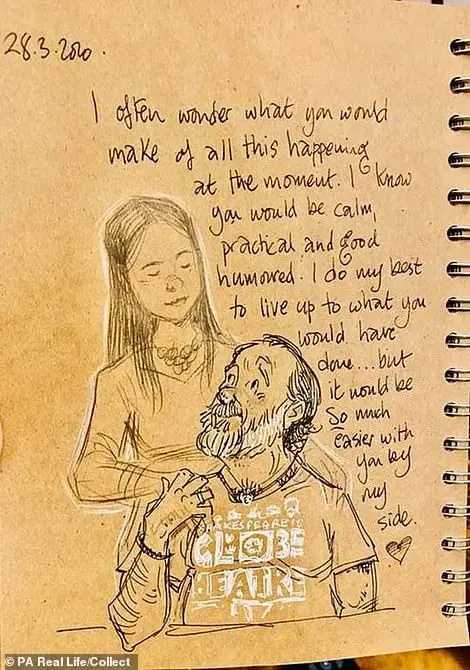 28.3.2020.
I often wonder what you would
make of all this happening
at the moment. I know
you would be calm,
practical and good
humoured. I do my best
to live up to what you
would have
done...but
it would be
so much
easier with
you by
my
side.
SHAKESPEARE'S
GLOBE
THEATRE
© PA Real Life/Collect